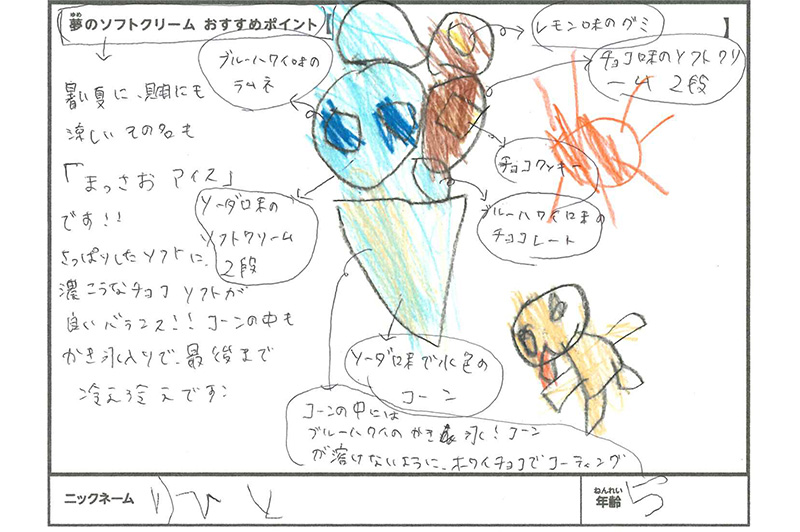 夢のソフトクリーム おすすめポイント【 】
ゆめ
暑い夏に、見た目にも
涼しい その名も
「まっさお アイス」
です!!
さっぱりしたソフトに、
濃こうなチョコ ソフトが
良いバランス!! コーンの中も
かき氷入りで、最後まで
冷え冷えです!
ブルーハワイ味の
ラムネ
ソーダ味の
ソフトクリーム
2段
レモン味のグミ
チョコ味のソフトクリ
ーム 2段
チョコクッキー
ブルーハワイ味の
チョコレート
ソーダ味で水色の
コーン
コーンの中には
ブルーハワイのかき氷!コーン
が溶けないように、ホワイチョコでコーティング
ニックネーム
ねんれい
年齢 5